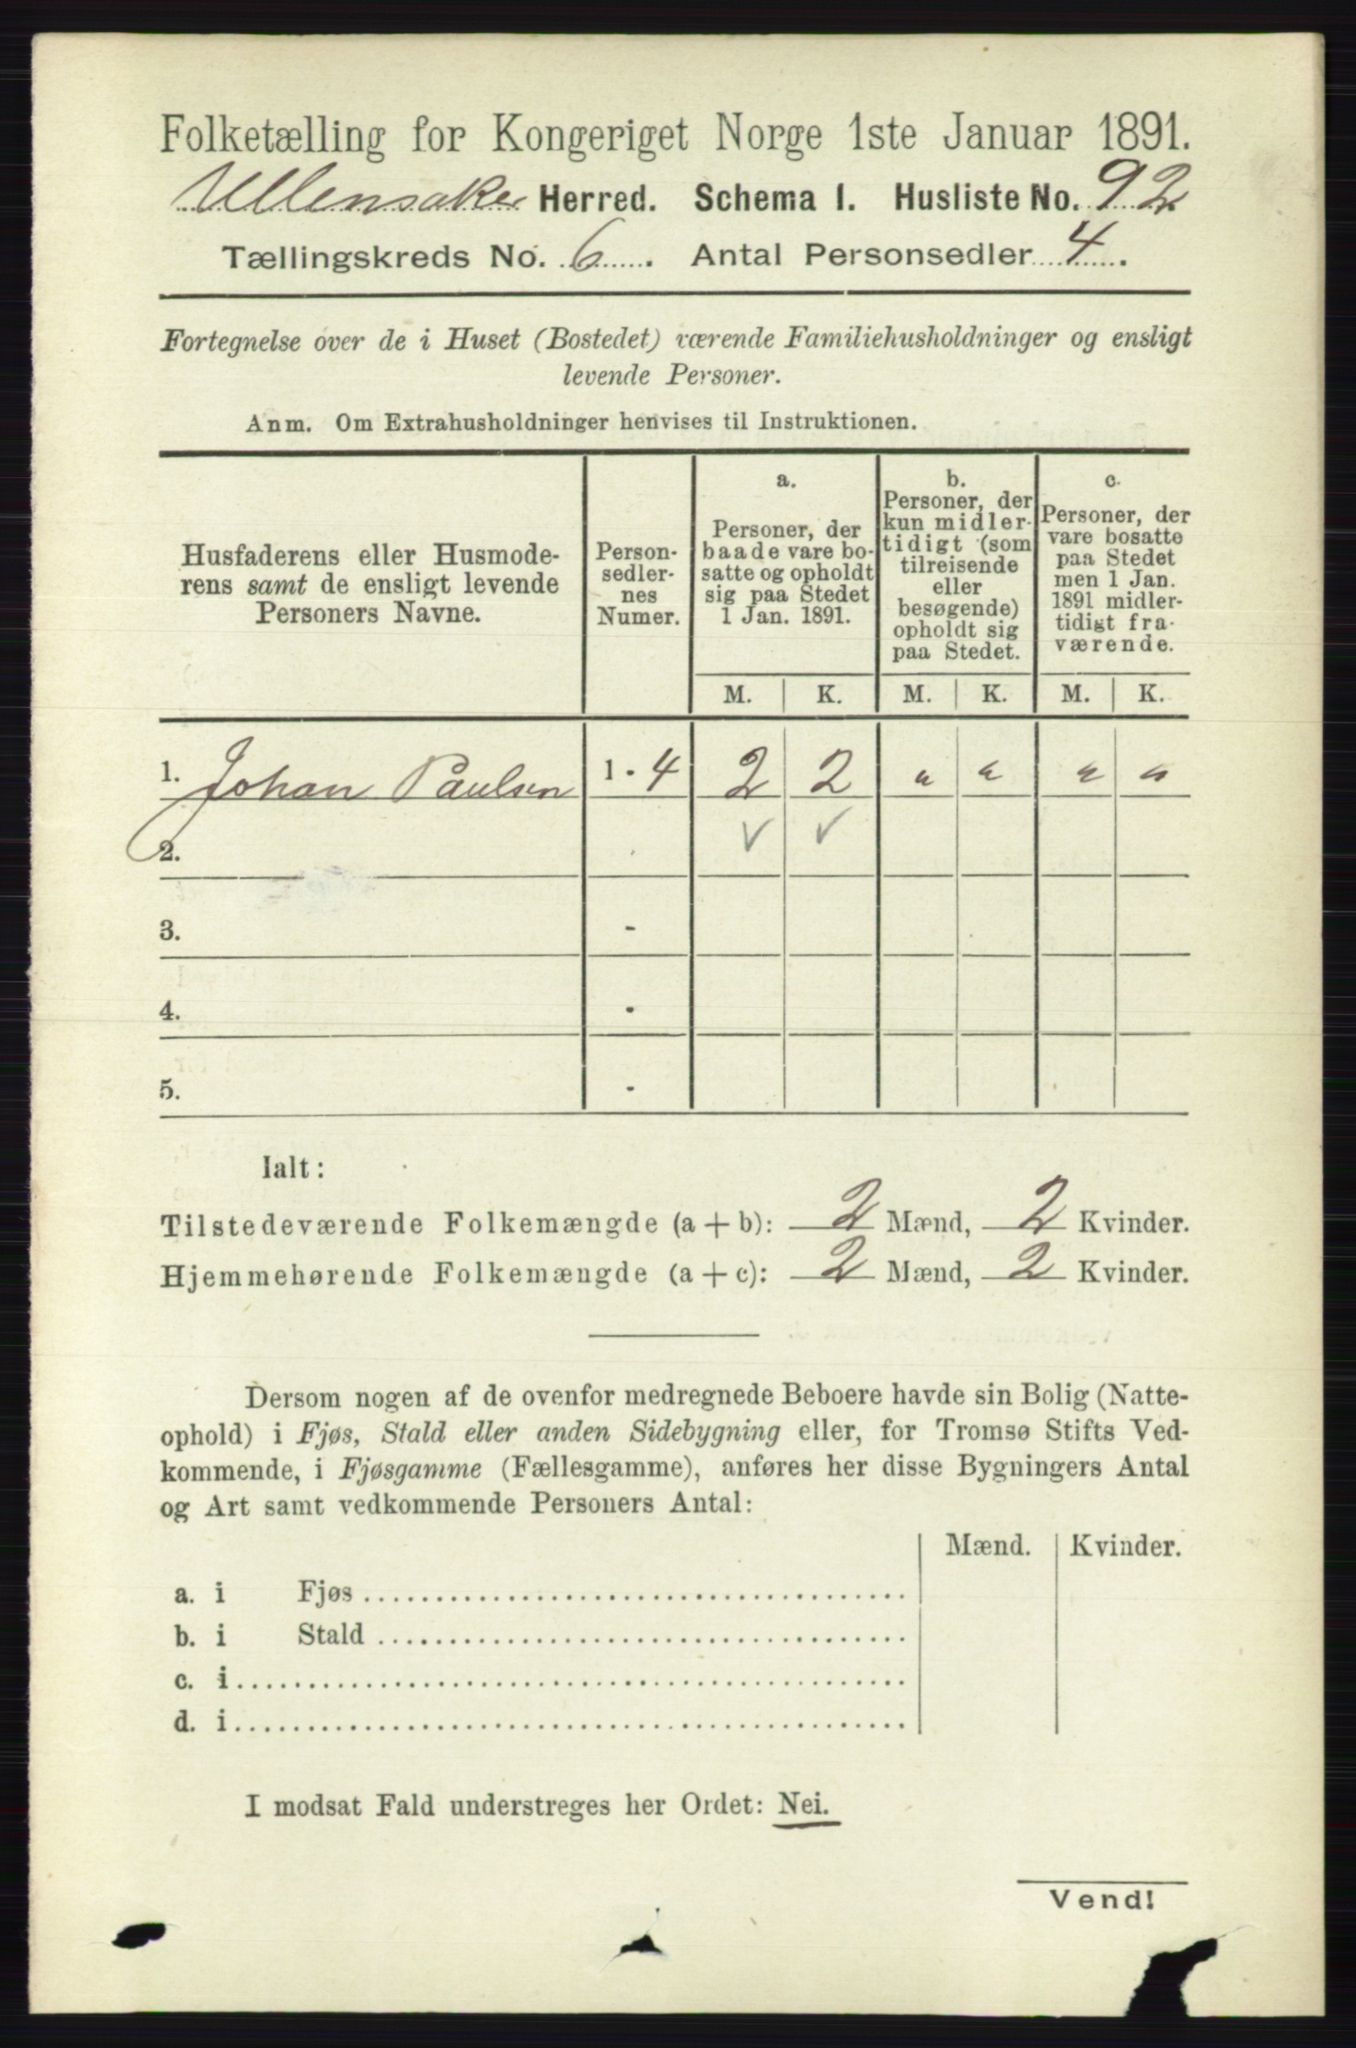 Folketælling for Kongeriget Norge 1ste Januar 1891.
Ullensaker Herred. Schema I. Husliste No. 92
Tællingskreds No. 6. Antal Personsedler 4.
Fortegnelse over de i Huset (Bostedet) værende Familiehusholdninger og ensligt
levende Personer.
Anm. Om Extrahusholdninger henvises til Instruktionen.
Husfaderens eller Husmode-
rens samt de ensligt levende
Personers Navne.
Person-
sedler-
nes
Numer.
a.
Personer, der
baade vare bo-
satte og opholdt
sig paa Stedet
1 Jan. 1891.
b.
Personer, der
kun midler-
tidigt (som
tilreisende
eller
besøgende)
opholdt sig
paa Stedet.
c.
Personer, der
vare bosatte
paa Stedet
men 1 Jan.
1891 midler-
tidigt fra-
værende.
M. K. M. K. M. K.
1. Johan Paulsen 1 - 4 2 2 " " " "
2. ✓ ✓
3. -
4. -
5. -
Ialt:
Tilstedeværende Folkemængde (a + b): 2 Mænd, 2 Kvinder.
Hjemmehørende Folkemængde (a + c): 2 Mænd, 2 Kvinder.
Dersom nogen af de ovenfor medregnede Beboere havde sin Bolig (Natte-
ophold) i Fjøs, Stald eller anden Sidebygning eller, for Tromsø Stifts Ved-
kommende, i Fjøsgamme (Fællesgamme), anføres her disse Bygningers Antal
og Art samt vedkommende Personers Antal:
Mænd. Kvinder.
a. i Fjøs
b. i Stald
c. i
d. i
I modsat Fald understreges her Ordet: Nei.
Vend!